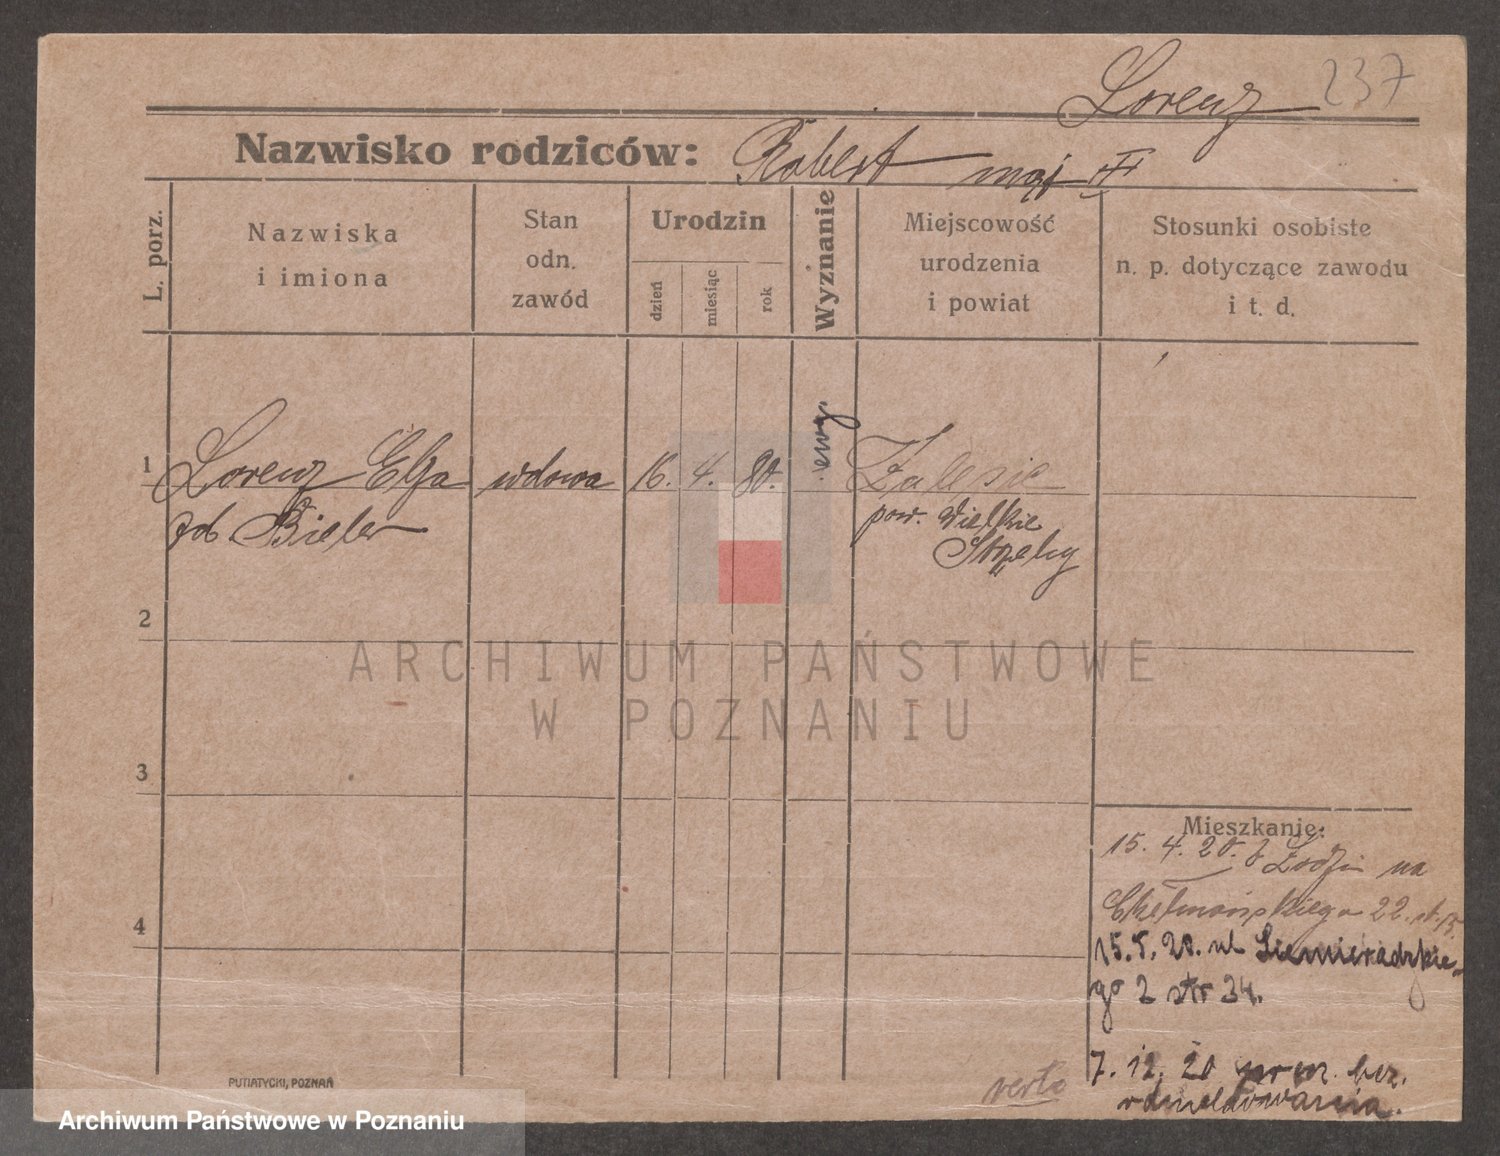 Lorenz 237
Nazwisko rodziców: Robert mąż
L. porz.
Nazwiska
i imiona
Stan
odn.
zawód
Urodzin
dzień
miesiąc
rok
Wyznanie
Miejscowość
urodzenia
i powiat
Stosunki osobiste
n. p. dotyczące zawodu
i t. d.
1 Lorenz Elza wdowa 16. 4. 80. ewg. Zalesie
Bieler pow. Wielkie
Strzelcy
2
3
4
Mieszkanie:
15. 4. 20. z Łodzi na
Chełmońskiego 22. st. 13.
15.5.20. ul Siemieradzkie-
go 2 str 34.
7. 12. 20 bez.
odmeldowania.
verte
PUTIATYCKI, POZNAŃ
ARCHIWUM PAŃSTWOWE
W POZNANIU
Archiwum Państwowe w Poznaniu